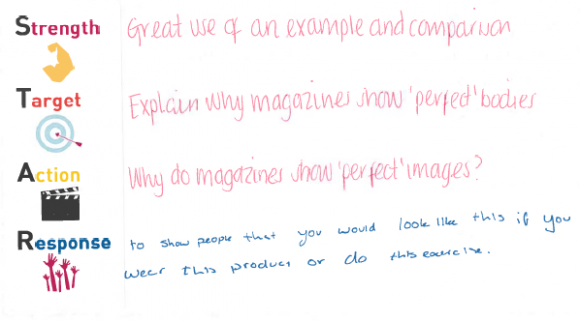 Strength Great use of an example and comparison
Target Explain why magazines show 'perfect' bodies
Action Why do magazines show 'perfect' images?
Response to show people that you would look like this if you
wear this product or do this exercise.